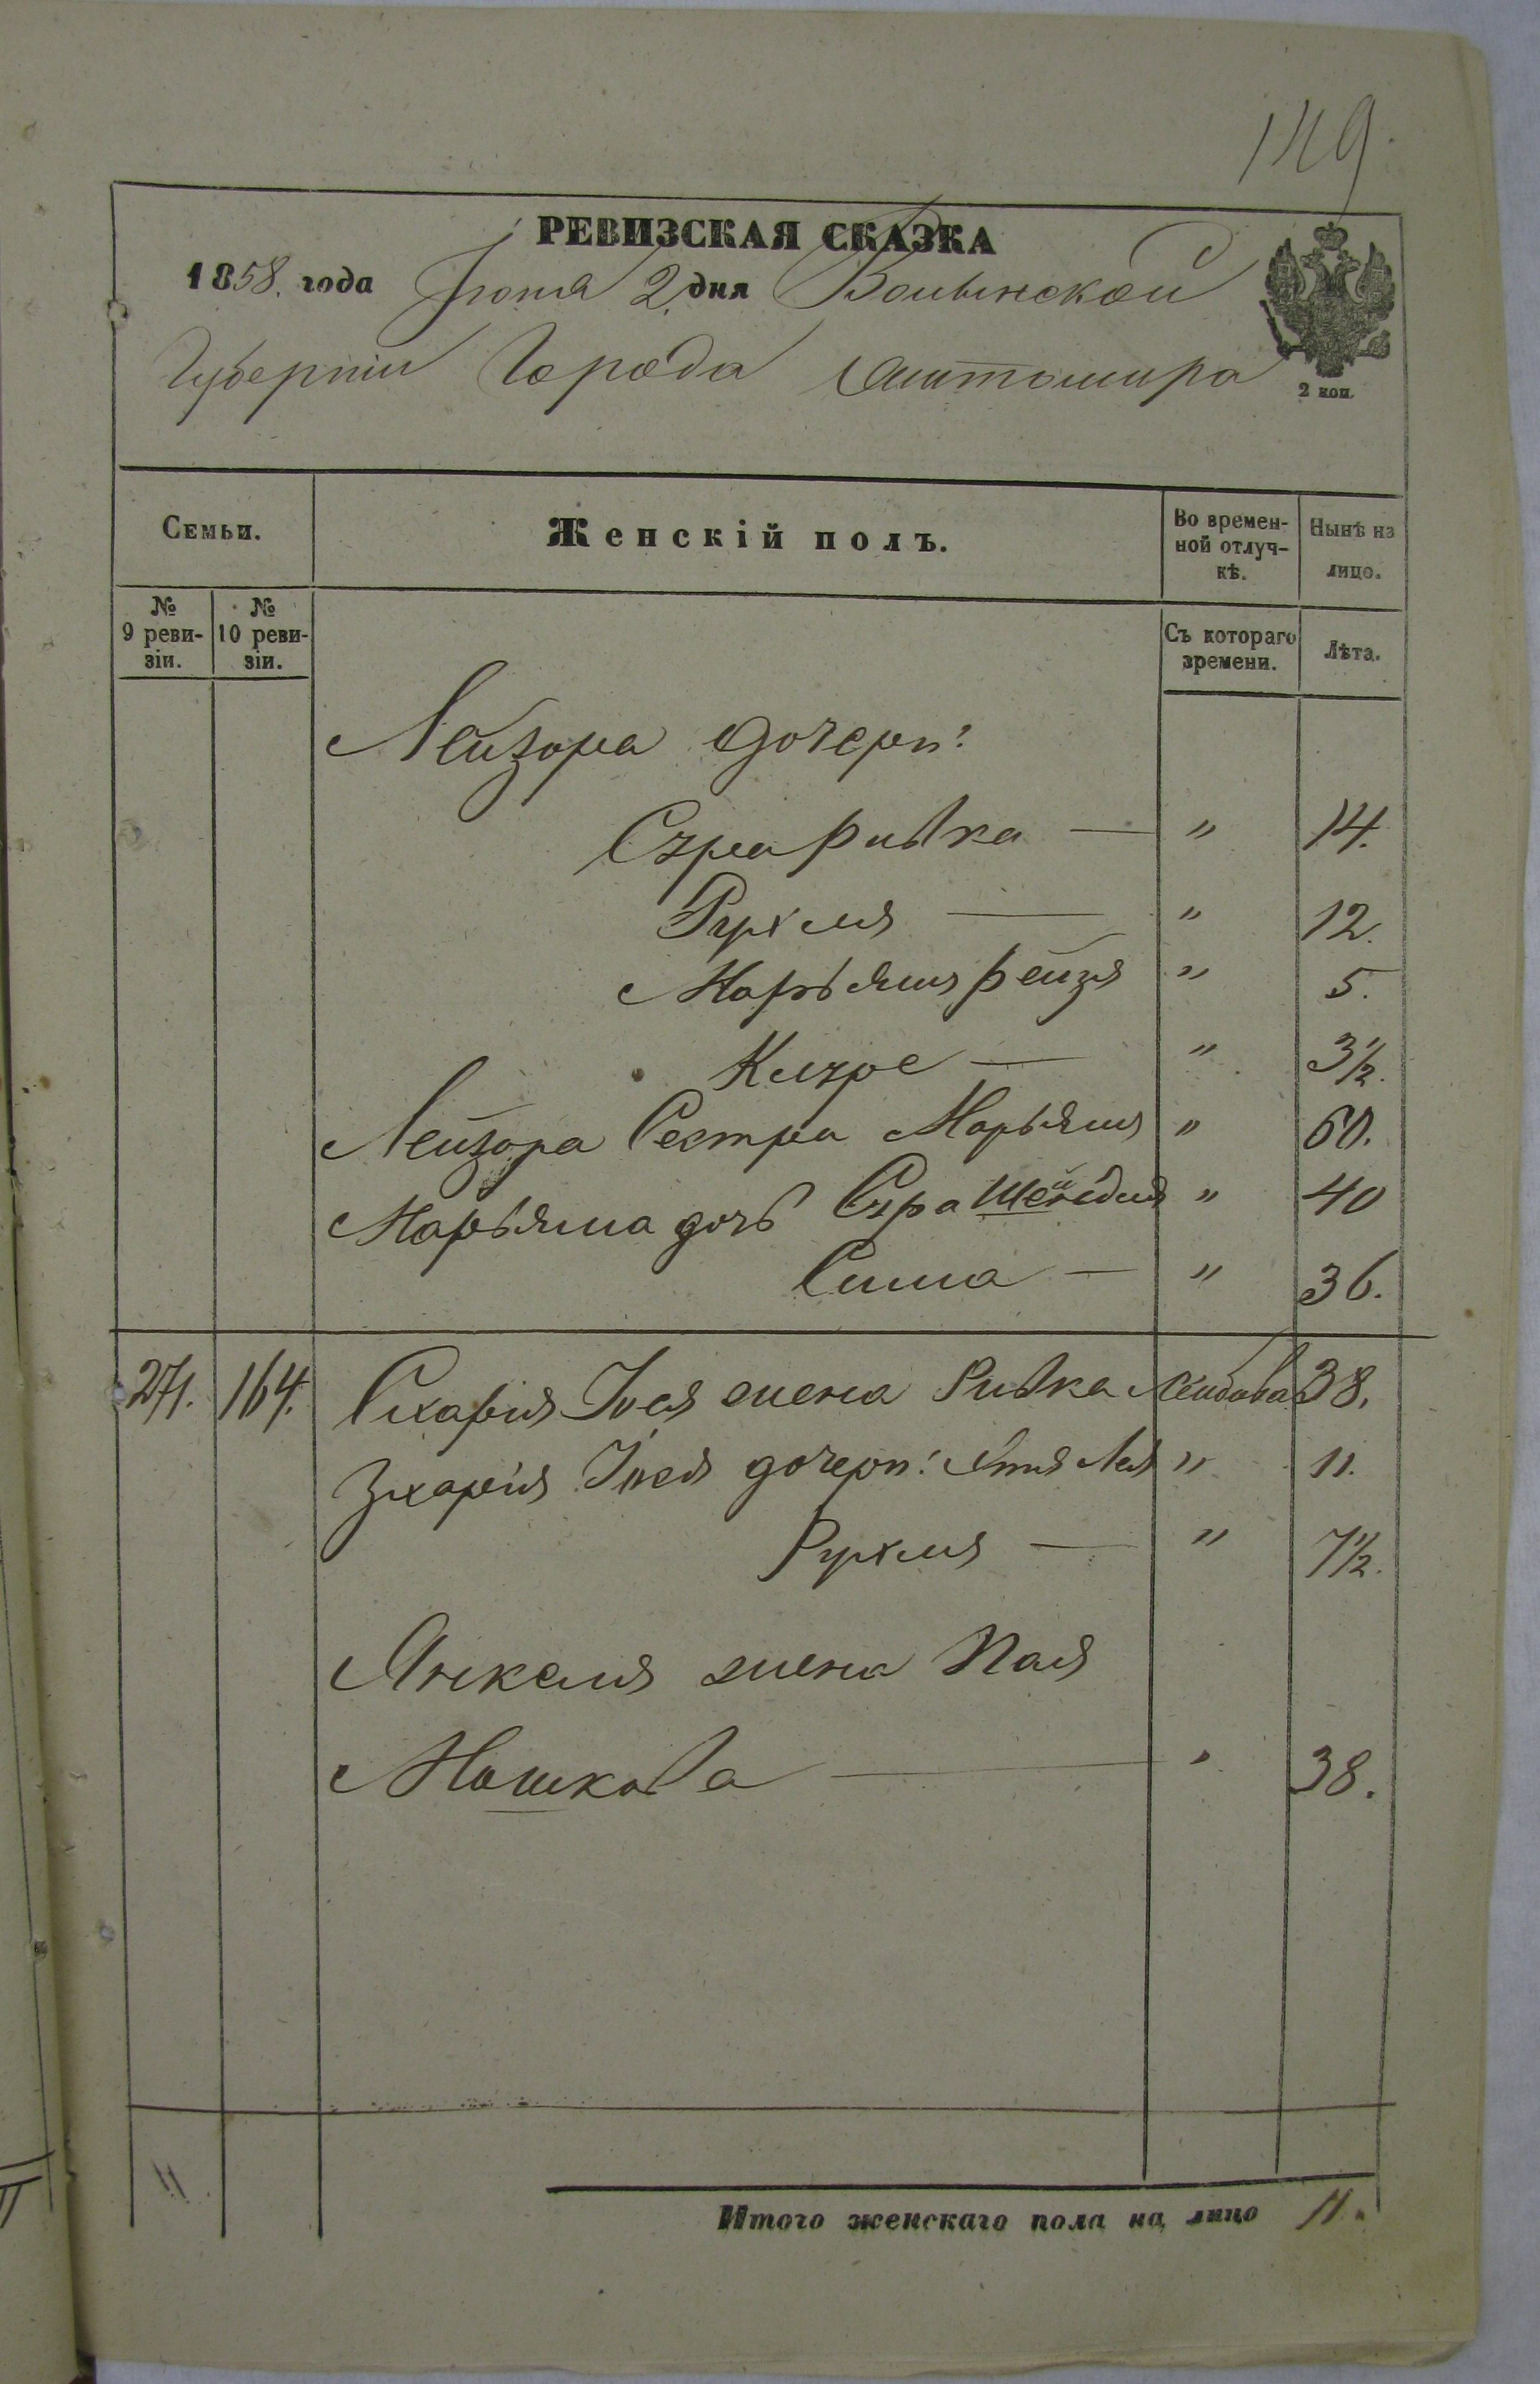 149.
РЕВИЗСКАЯ СКАЗКА
1858. года Іюня 2 дня Волынской
Губерніи Города Житомира
2 коп.
Семьи.
Женскій полъ.
Во времен-
ной отлуч-
кѣ.
Нынѣ на
лицо.
№
9 реви-
зіи.
№
10 реви-
зіи.
Съ котораго
времени.
Лѣта.
Лейзора дочери:
Сура Ривка — " 14.
Рухля — " 12.
Марьям Рейзя " 5.
— " 3½.
Лейзора Сестра Марьям " 60.
Марьяма дочь Сура Шейндля " 40
Сима — " 36.
271. 164. Схарія Іося жена Ривка Лейбова 38.
Зхарія Іося дочери: Лея " 11.
Рухля — " 7½.
Янкеля жена
Мошкова — " 38.
11.
Итого женскаго пола на лицо 11.